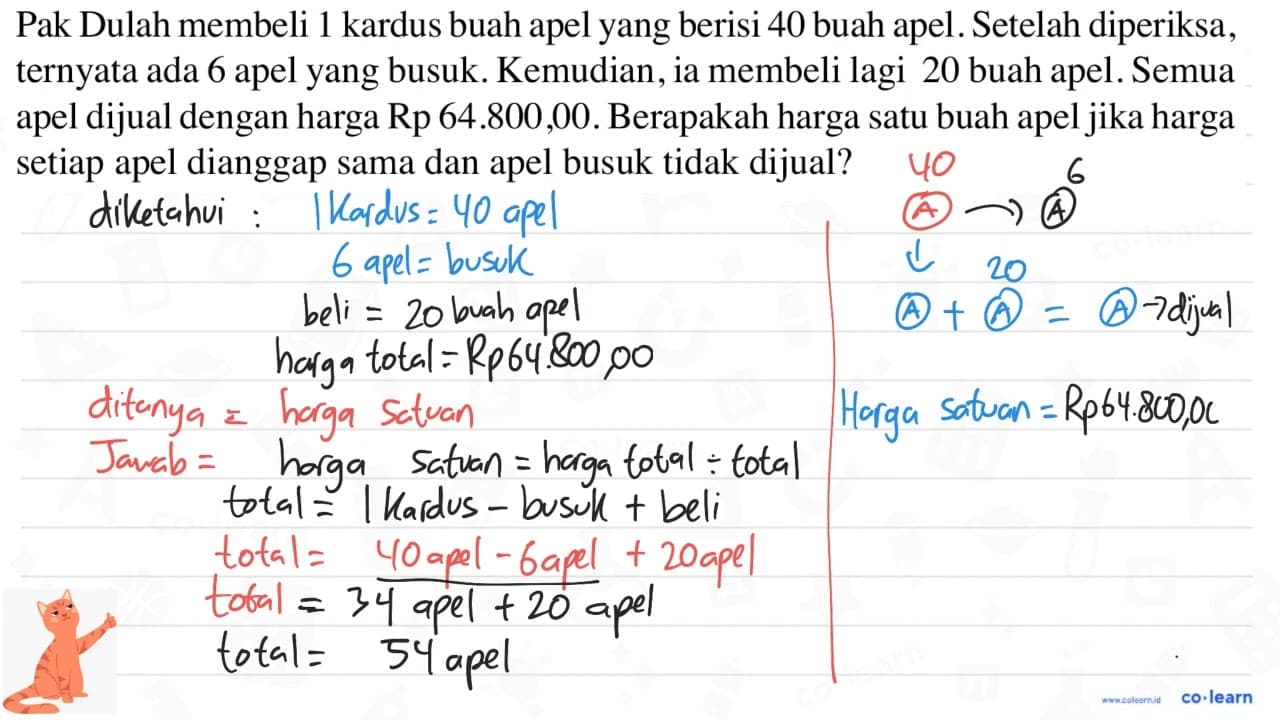 Pak Dulah membeli 1 kardus buah apel yang berisi 40 buah apel. Setelah diperiksa,
ternyata ada 6 apel yang busuk. Kemudian, ia membeli lagi 20 buah apel. Semua
apel dijual dengan harga Rp 64.800,00. Berapakah harga satu buah apel jika harga
setiap apel dianggap sama dan apel busuk tidak dijual?
diketahui : 1 Kardus = 40 apel
6 apel = busuk
beli = 20 buah apel
harga total = Rp64.800,00
ditanya = harga satuan
Jawab = harga satuan = harga total ÷ total
total = 1 Kardus - busuk + beli
total = 40 apel - 6 apel + 20 apel
total = 34 apel + 20 apel
total = 54 apel
40 6
A → A
↓ 20
A + A = A → dijual
Harga satuan = Rp64.800,0
www.colearn.id co·learn